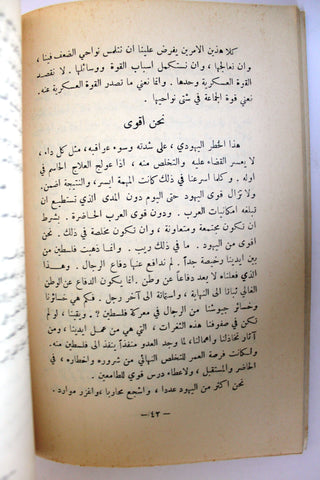 كلا هذين الامرين يفرض علينا ان نتلمس نواحي الضعف فينا ،
وان نعالجها ، وان نستكمل اسباب القوة ووسائلها . لا نقصد
القوة العسكرية وحدها . وانما نعني ما تصدر القوة العسكرية عنه
نعني قوة الجماعة في شتى نواحيها .
نحن اقوى
هذا الخطر اليهودي ، على شدته وسوء عواقبه ، مثل كل داء ،
لا يعسر القضاء عليه والتخلص منه ، اذا عولج العلاج الحاسم في
اوله . وكلما اسرعنا في ذلك كانت المهمة ايسر ، والنتيجة اضمن .
ولا تزال قوى اليهود حتى اليوم دون المدى الذي نستطيع ان
نبلغه امكانيات العرب . ودون قوى العرب الحاضرة . بشرط
ان تكون مجتمعة ومتعاونة ، وان تكون مخلصة في ذلك . نحن
اقوى من اليهود . ما في ذلك ريب . وانما ذهبت فلسطين من
بين ايدينا رخيصة جداً . لم ندافع عنها دفاع الرجال . وهذا
الذي فعلناه لا يعد دفاعاً عن وطن . انما يكون الدفاع عن الوطن
الغالي ثباتا الى النهاية ، واستماتة الى آخر رجل . فكم هي خسائرنا
وخسائر جيوشنا من الرجال في معركة فلسطين ? . ويقيننا ، لو لم
تكن في صفوفنا هذه الثغرات ، التي هي من عمل ايدينا ، ومن
آثار تخاذلنا واهمالنا ، لما وجد العدو منفذاً ينفذ الى فلسطين منه .
ولكانت فرصة العمر للتخلص النهائي من شروره واخطاره ، في
الحاضر والمستقبل ، ولاعطاء درس قوي للطامعين .
نحن اكثر من اليهود عددا ، واشجع محاربا ، واغزر موارد .
— ٤٢ —